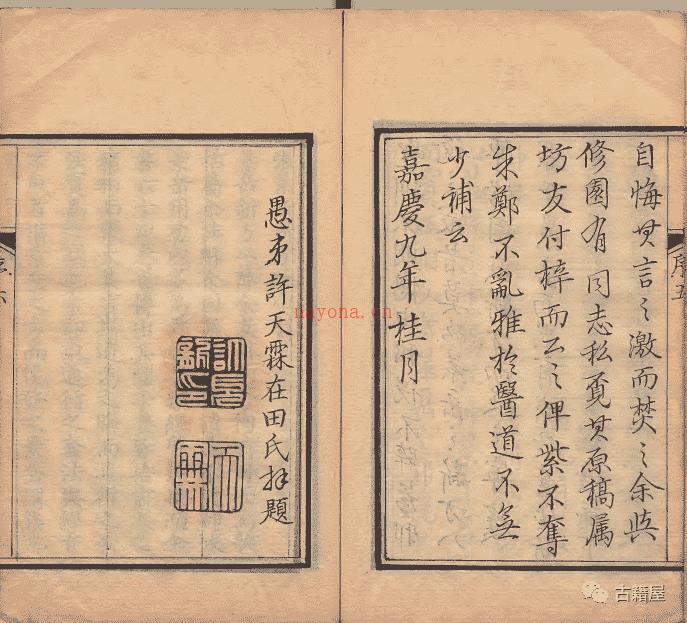 序五
自悔其言之激而焚之余與
修園有同志私覓其原稿属
坊友付梓而公之俾紫不奪
朱鄭不亂雅於醫道不無
少補云
嘉慶九年桂月
愚弟許天霖在田氏拜題
序六
nayona.cn
古籍屋